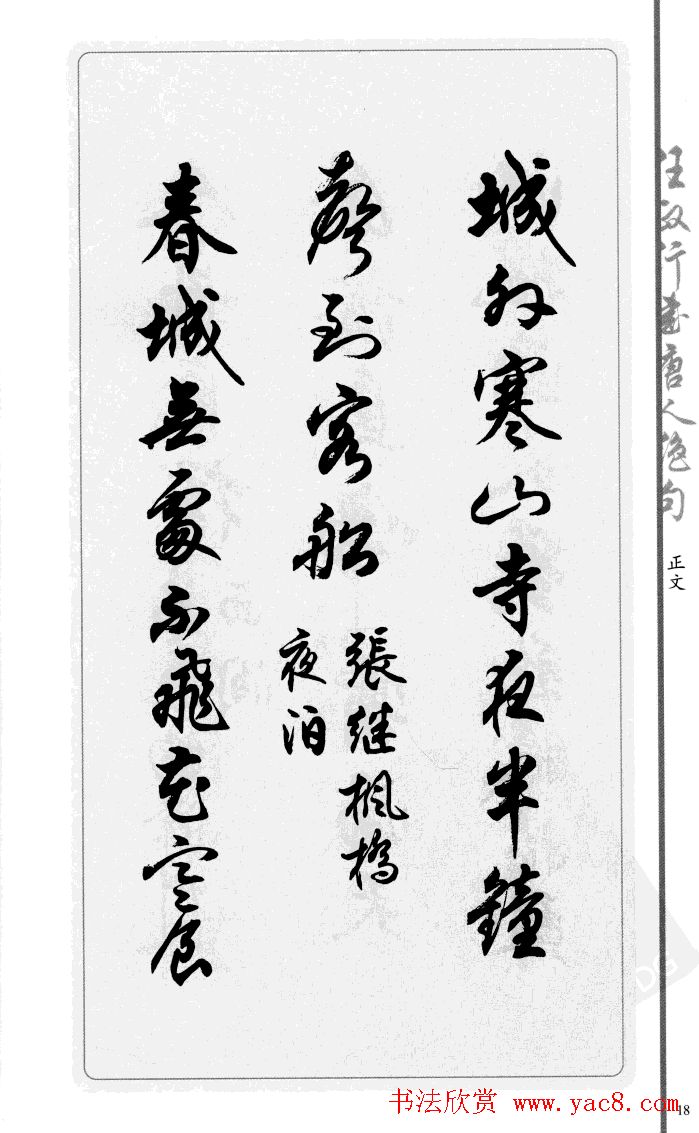 城外寒山寺夜半鐘
聲到客船
張继楓橋
夜泊
春城無處不飛花寒食
任政行書唐人絶句
正文
書法欣赏 www.yac8.com
18
DG